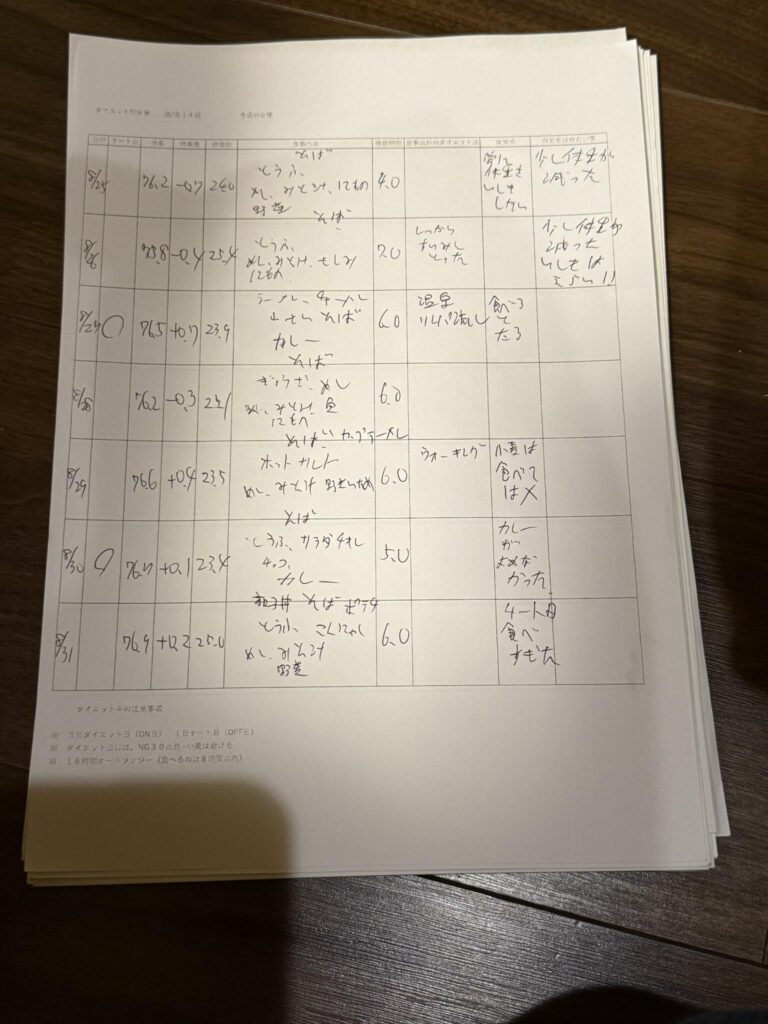 ダイエット
今週の目標
日付 チート日 体重 体重差 体脂肪 食事内容 睡眠時間 食事以外のダイエット法 反省点 自分を褒めたい事
8/25 76.2 -0.7 24.0
そば
とうふ
めし、みそ汁、にもの
野菜
4.0
体重を
少し体重が
減った
8/26 75.8 -0.4 25.4
そば
とうふ
めし、みそ汁、さしみ
にもの
7.0
しっかり
すいみん
とった
少し体重が
減った
えらい!!
8/27 ○ 76.5 +0.7 23.9
ラーメン、チャーハン
そば
カレー
6.0
温泉
食べす
8/28 76.2 -0.3 24.1
そば
ぎょうざ、めし
めし、みそ汁、魚
にもの
6.0
8/29 76.6 +0.4 23.5
そば カップラーメン
めし、みそ汁 野菜いため
6.0
ウォーキング
小麦は
食べて
は×
8/30 ○ 76.7 +0.1 23.4
そば
とうふ、サラダチキン
カレー
5.0
カレー
が
やめな
かった
8/31 76.9 +0.2 25.0
そば ポテチ
とうふ こんにゃく
めし、みそ汁
野菜
6.0
チート日
食べ
すぎた
ダイエット中の注意事項
※ 3日ダイエット日(ON日) 1日チート日(OFF日)
※ ダイエット日には、NG30点目・小麦は避ける
※ 16時間オートファジー(食べるのは8時間以内)